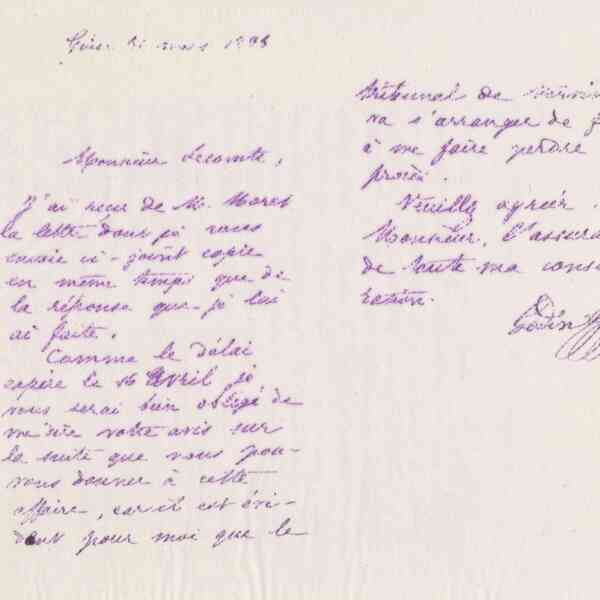 mars
Monsieur Lecomte,
J'ai reçu de M. Moret
la lettre dont je vous
envoie ci-joint copie
en même temps que de
la réponse que je lui
ai faite.
Comme le délai
expire le 16 avril je
vous serai bien obligé de
me votre avis sur
la suite que nous pou-
vons donner à cette
affaire, car il est évi-
dent pour moi que le
tribunal de
va s'arranger de
à me faire perdre
procès.
Veuillez agréer
Monsieur, l'assura
de toute ma consi
ration.
Godin